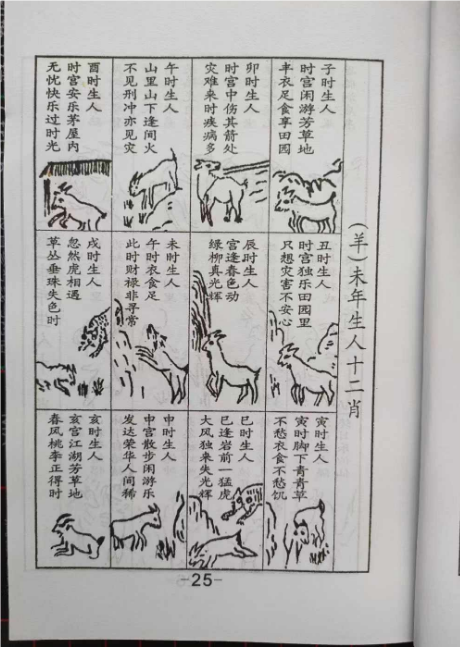 (羊)未年生人十二肖
子时生人
时宫闲游芳草地
丰衣足食享田园
丑时生人
时宫独乐田园里
只想灾害不安心
寅时生人
寅时脚下青青草
不愁衣食不愁饥
卯时生人
时宫中伤其箭处
灾难来时疾病多
辰时生人
宫逢春色动
绿柳真光辉
巳时生人
巳逢岩前一猛虎
大风独来失光辉
午时生人
山里山下逢间火
不见刑冲亦见灾
未时生人
午时衣食足
此时财禄非寻常
申时生人
申宫散步闲游乐
发达荣华人间稀
酉时生人
时宫安乐茅屋内
无忧快乐过时光
戌时生人
忽然虎相遇
草丛垂珠失色时
亥时生人
亥宫江湖芳草地
春风桃李正得时
-25-